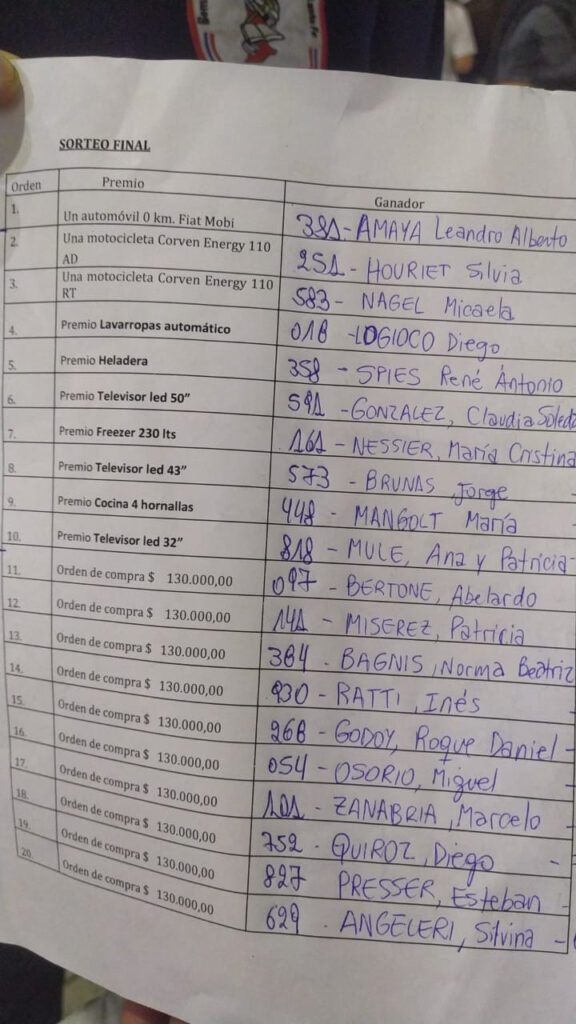 SORTEO FINAL
Orden Premio Ganador
1. Un automóvil 0 km. Fiat Mobi 381-AMAYA Leandro Alberto
2. Una motocicleta Corven Energy 110 AD 251-HOURIET Silvia
3. Una motocicleta Corven Energy 110 RT 583- NAGEL Micaela
4. Premio Lavarropas automático 018 -LOGIOCO Diego
5. Premio Heladera 358 - SPIES René Ántonio
6. Premio Televisor led 50” 591 -GONZALEZ, Claudia
7. Premio Freezer 230 lts 161 - NESSIER, María Cristina
8. Premio Televisor led 43” 573 - BRUNAS Jorge
9. Premio Cocina 4 hornallas 448 - MANGOLT María
10. Premio Televisor led 32” 818 - MULE, Ana y Patricia-
11. Orden de compra $ 130.000,00 097 - BERTONE, Abelardo
12. Orden de compra $ 130.000,00 141 - MISEREZ, Patricia
13. Orden de compra $ 130.000,00 364 - BAGNIS, Norma Beatriz
14. Orden de compra $ 130.000,00 930 - RATTI, Inés
15. Orden de compra $ 130.000,00 268 - GODOY, Roque Daniel -
16. Orden de compra $ 130.000,00 054 - OSORIO, Miguel
17. Orden de compra $ 130.000,00 101 - ZANABRIA, Marcelo
18. Orden de compra $ 130.000,00 752 - QUIROZ, Diego -
19. Orden de compra $ 130.000,00 827 PRESSER, Esteban -
20. Orden de compra $ 130.000,00 629 - ANGELERI, Silvina -